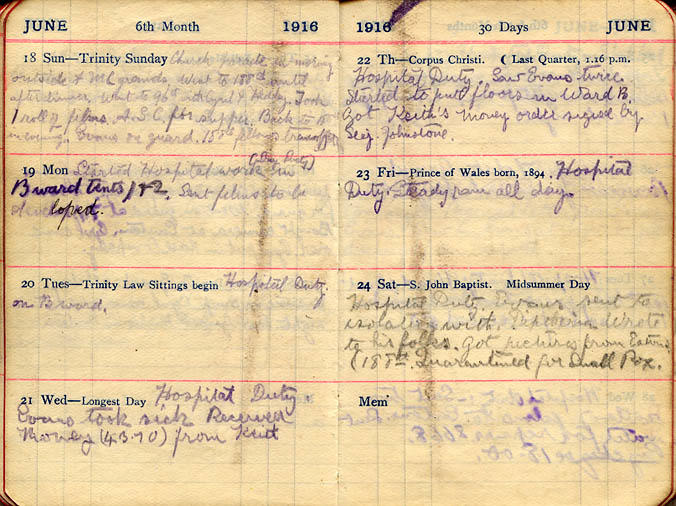 JUNE 6th Month 1916
18 Sun—Trinity Sunday Church parade in morning
outside & McGrands. Went to 188th until
after dinner. Went to 96th with Cyril & Heddy. Took
1 roll of films. A.S.C. for supper. Back to
in evening. Evans on guard. 188th fellows
19 Mon Started Hospital work in
(Day Duty)
B ward tents 1 & 2. Sent films to be
loped.
20 Tues—Trinity Law Sittings begin Hospital Duty
on B ward.
21 Wed—Longest Day Hospital Duty
Evans took sick Received
Money (4.3.70) from Keith
1916 30 Days JUNE
22 Th—Corpus Christi. ( Last Quarter, 1.16 p.m.
Hospital Duty. Saw Evans twice.
Started to put floors in Ward B.
Got Keith's money order signed by
Serg. Johnstone.
23 Fri—Prince of Wales born, 1894. Hospital
Duty. Steady rain all day.
24 Sat—S. John Baptist. Midsummer Day
Hospital Duty Evans sent to
isolation with Diptheria Wrote
to his folks. Got pictures from Eaton's
(188th Quarantined for Small Pox.
Mem